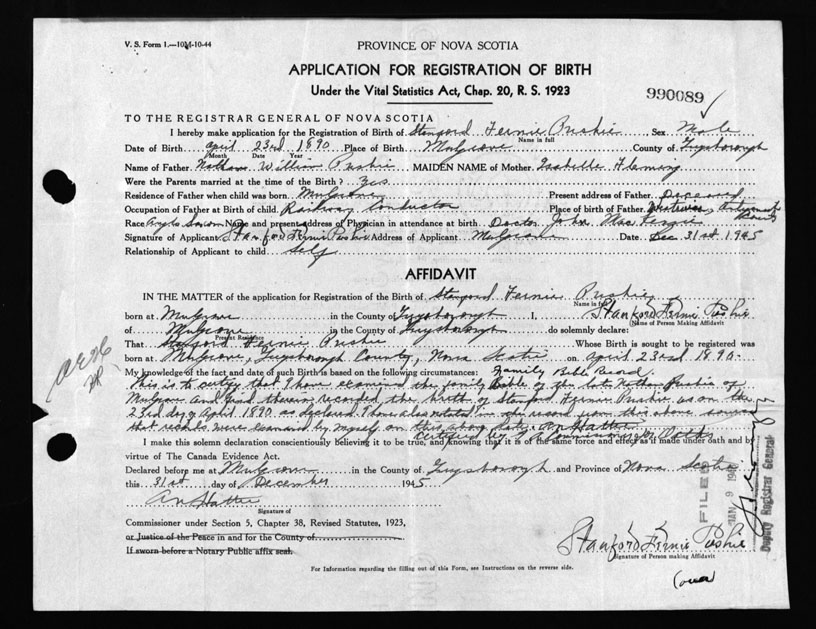 V. S. Form 1.—10M-10-44
PROVINCE OF NOVA SCOTIA
APPLICATION FOR REGISTRATION OF BIRTH
Under the Vital Statistics Act, Chap. 20, R. S. 1923
990089
TO THE REGISTRAR GENERAL OF NOVA SCOTIA
I hereby make application for the Registration of Birth of Stanford Fernie Pushie Sex Male
Name in full
Date of Birth April 23rd 1890 Place of Birth Mulgrave County of Guysborough
Month Date Year
Name of Father Nathan William Pushie MAIDEN NAME of Mother Isabelle Fleming
Were the Parents married at the time of the Birth? Yes
Residence of Father when child was born Mulgrave Present address of Father Deceased
Occupation of Father at Birth of child Railway Conductor Place of birth of Father
Race Anglo Saxon Name and present address of Physician in attendance at birth Doctor John Mac
Signature of Applicant Stanford Fernie Pushie Address of Applicant Mulgrave Date Dec 31st 1945
Relationship of Applicant to child Self
AFFIDAVIT
IN THE MATTER of the application for Registration of the Birth of Stanford Fernie Pushie
Name in full
born at Mulgrave in the County of Guysborough I, Stanford Fernie Pushie
(Name of Person Making Affidavit
of Mulgrave in the County of Guysborough do solemnly declare:
Present Residence
That Stanford Fernie Pushie Whose Birth is sought to be registered was
born at Mulgrave, Guysborough County, Nova Scotia on April 23rd 1890.
My knowledge of the fact and date of such Birth is based on the following circumstances: Family Bible Record.
This is to certify that I have examined the family Bible of the late Nathan Pushie of
Mulgrave and find therein recorded the birth of Stanford Fernie Pushie as on the
23rd day of April 1890 as declared. I have also noted in the record from the above source
that records were examined by myself on this above date. A N Hattie
Certified by Commissioner
I make this solemn declaration conscientiously believing it to be true, and knowing that it is of the same force and effect as if made under oath and by
virtue of The Canada Evidence Act.
Declared before me at Mulgrave in the County of Guysborough and Province of Nova Scotia
this 31st day of December 1945
A N Hattie
Signature of
Commissioner under Section 5, Chapter 38, Revised Statutes, 1923,
or Justice of the Peace in and for the County of
If sworn before a Notary Public affix seal.
Stanford Fernie Pushie
Signature of Person making Affidavit
For Information regarding the filling out of this Form, see Instructions on the reverse side.
(over)
FILED
JAN 9 194
Deputy Registrar General